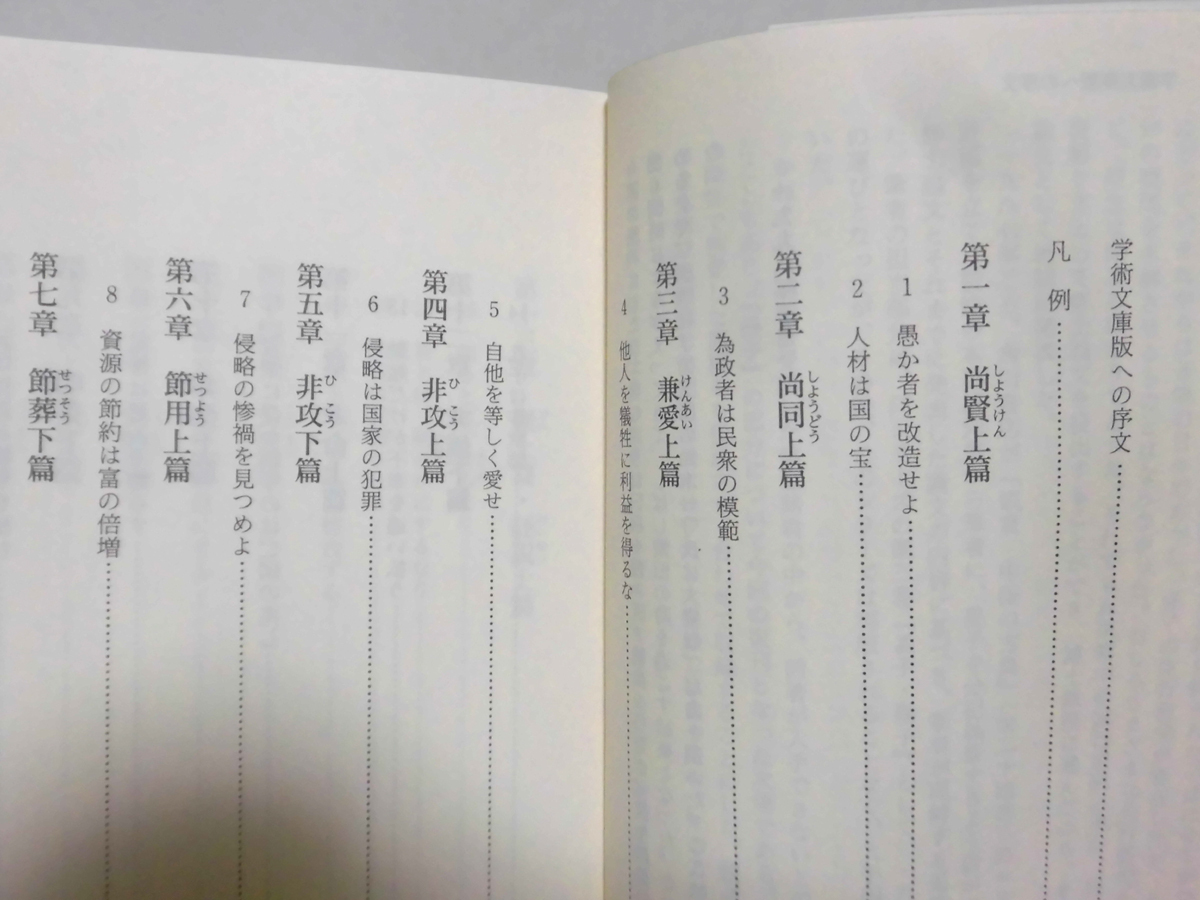 学術文庫版への序文……………………
凡 例……………………
第一章 尚賢上篇
しようけん
1 愚か者を改造せよ……………………
2 人材は国の宝……………………
第二章 尚同上篇
しようどう
3 為政者は民衆の模範……………………
第三章 兼愛上篇
けんあい
4 他人を犠牲に利益を得るな……………………
5 自他を等しく愛せ……………………
第四章 非攻上篇
ひこう
6 侵略は国家の犯罪……………………
第五章 非攻下篇
ひこう
7 侵略の惨禍を見つめよ……………………
第六章 節用上篇
せつよう
8 資源の節約は富の倍増……………………
第七章 節葬下篇
せつそう